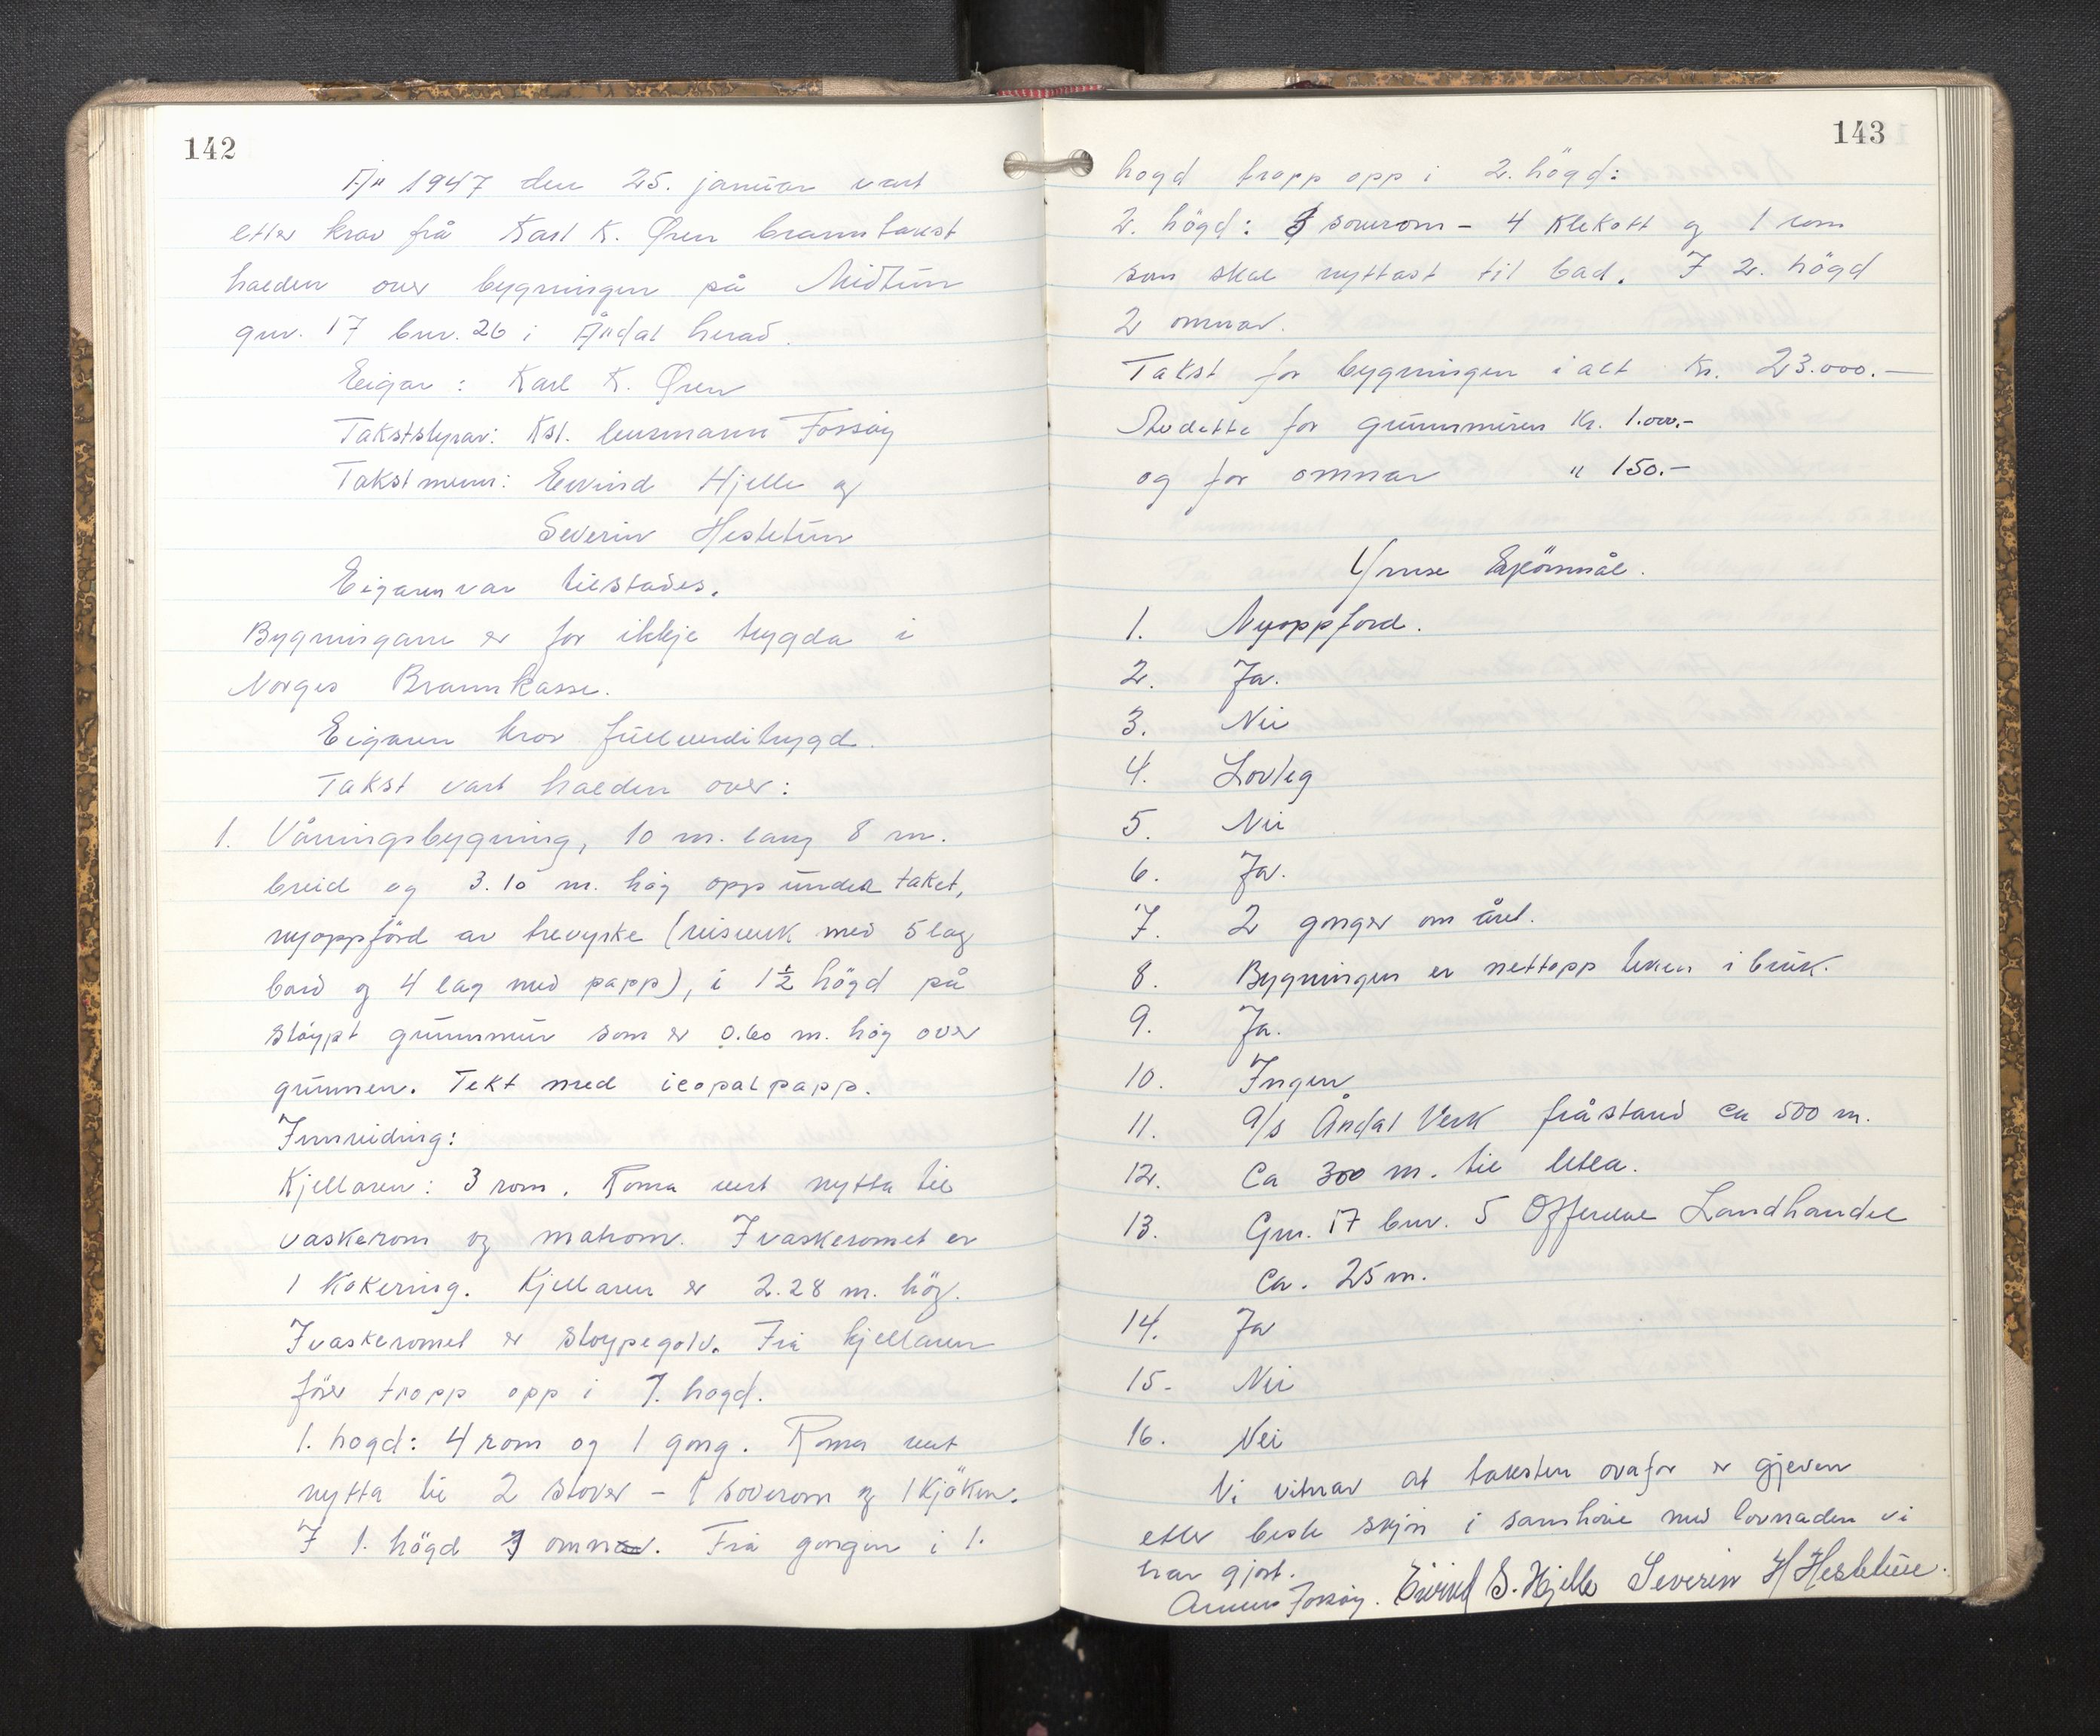 142
År 1947 den 25. januar vart
etter krav frå Karl K. Øren branntakst
halden over bygningen på Midtun
gnr. 17 bnr. 26 i Årdal herad.
Eigar: Karl K. Øren
Takststyrar: Kst. lensmann Forsøy
Takstmenn: Eivind Hjelle og
Severin Hestetun
Eigaren var tilstades.
Bygningane er før ikkje trygda i
Norges Brannkasse.
Eigaren krov fullverditrygd.
Takst vart halden over:
1. Våningsbygning, 10 m. lang 8 m.
breid og 3.10 m. høg opp under taket,
nyoppförd av trevyrke (reisverk med 5 lag
bord og 4 lag med papp), i 1½ högd på
støypt grunnmur som er 0.60 m. høg over
grunnen. Tekt med icopalpapp.
Innreiding:
Kjellaren: 3 rom. Roma vert nytta til
vaskerom og matrom. I vaskeromet er
1 kokering. Kjellaren er 2.28 m. hög.
I vaskeromet er støypegolv. Frå kjellaren
förer tropp opp i 1. hogd.
1. hogd: 4 rom og 1 gong. Roma vert
nytta til 2 stover - 1 soverom og 1 kjöken.
I 1. högd 3 omnar. Frå gongen i 1.
143
hogd tropp opp i 2. högd:
2. högd: 3 soverom - 4 klekott og 1 rom
som skal nyttast til bad. I 2. högd
2 omnar.
Takst for bygningen i alt Kr. 23.000.-
Av dette for grunnmuren Kr. 1.000.-
og for omnar " 150.-
Ymse Spörsmål.
1. Nyoppförd.
2. Ja.
3. Nei
4. Lovleg
5. Nei
6. Ja.
7. 2 gonger om året.
8. Bygningen er nettopp teken i bruk.
9. Ja.
10. Ingen
11. A/s Årdal Verk fråstand ca 500 m.
12. Ca 300 m. til
13. Gnr. 17 bnr. 5 Offerdal Landhandel
Ca. 25 m.
14. Ja
15. Nei
16. Nei
Vi vitnar at taksten ovafor er gjeven
etter beste skjøn i samhøve med lovnaden vi
har gjort.
Forsøy. Eivind S. Hjelle Severin H Hestetun.